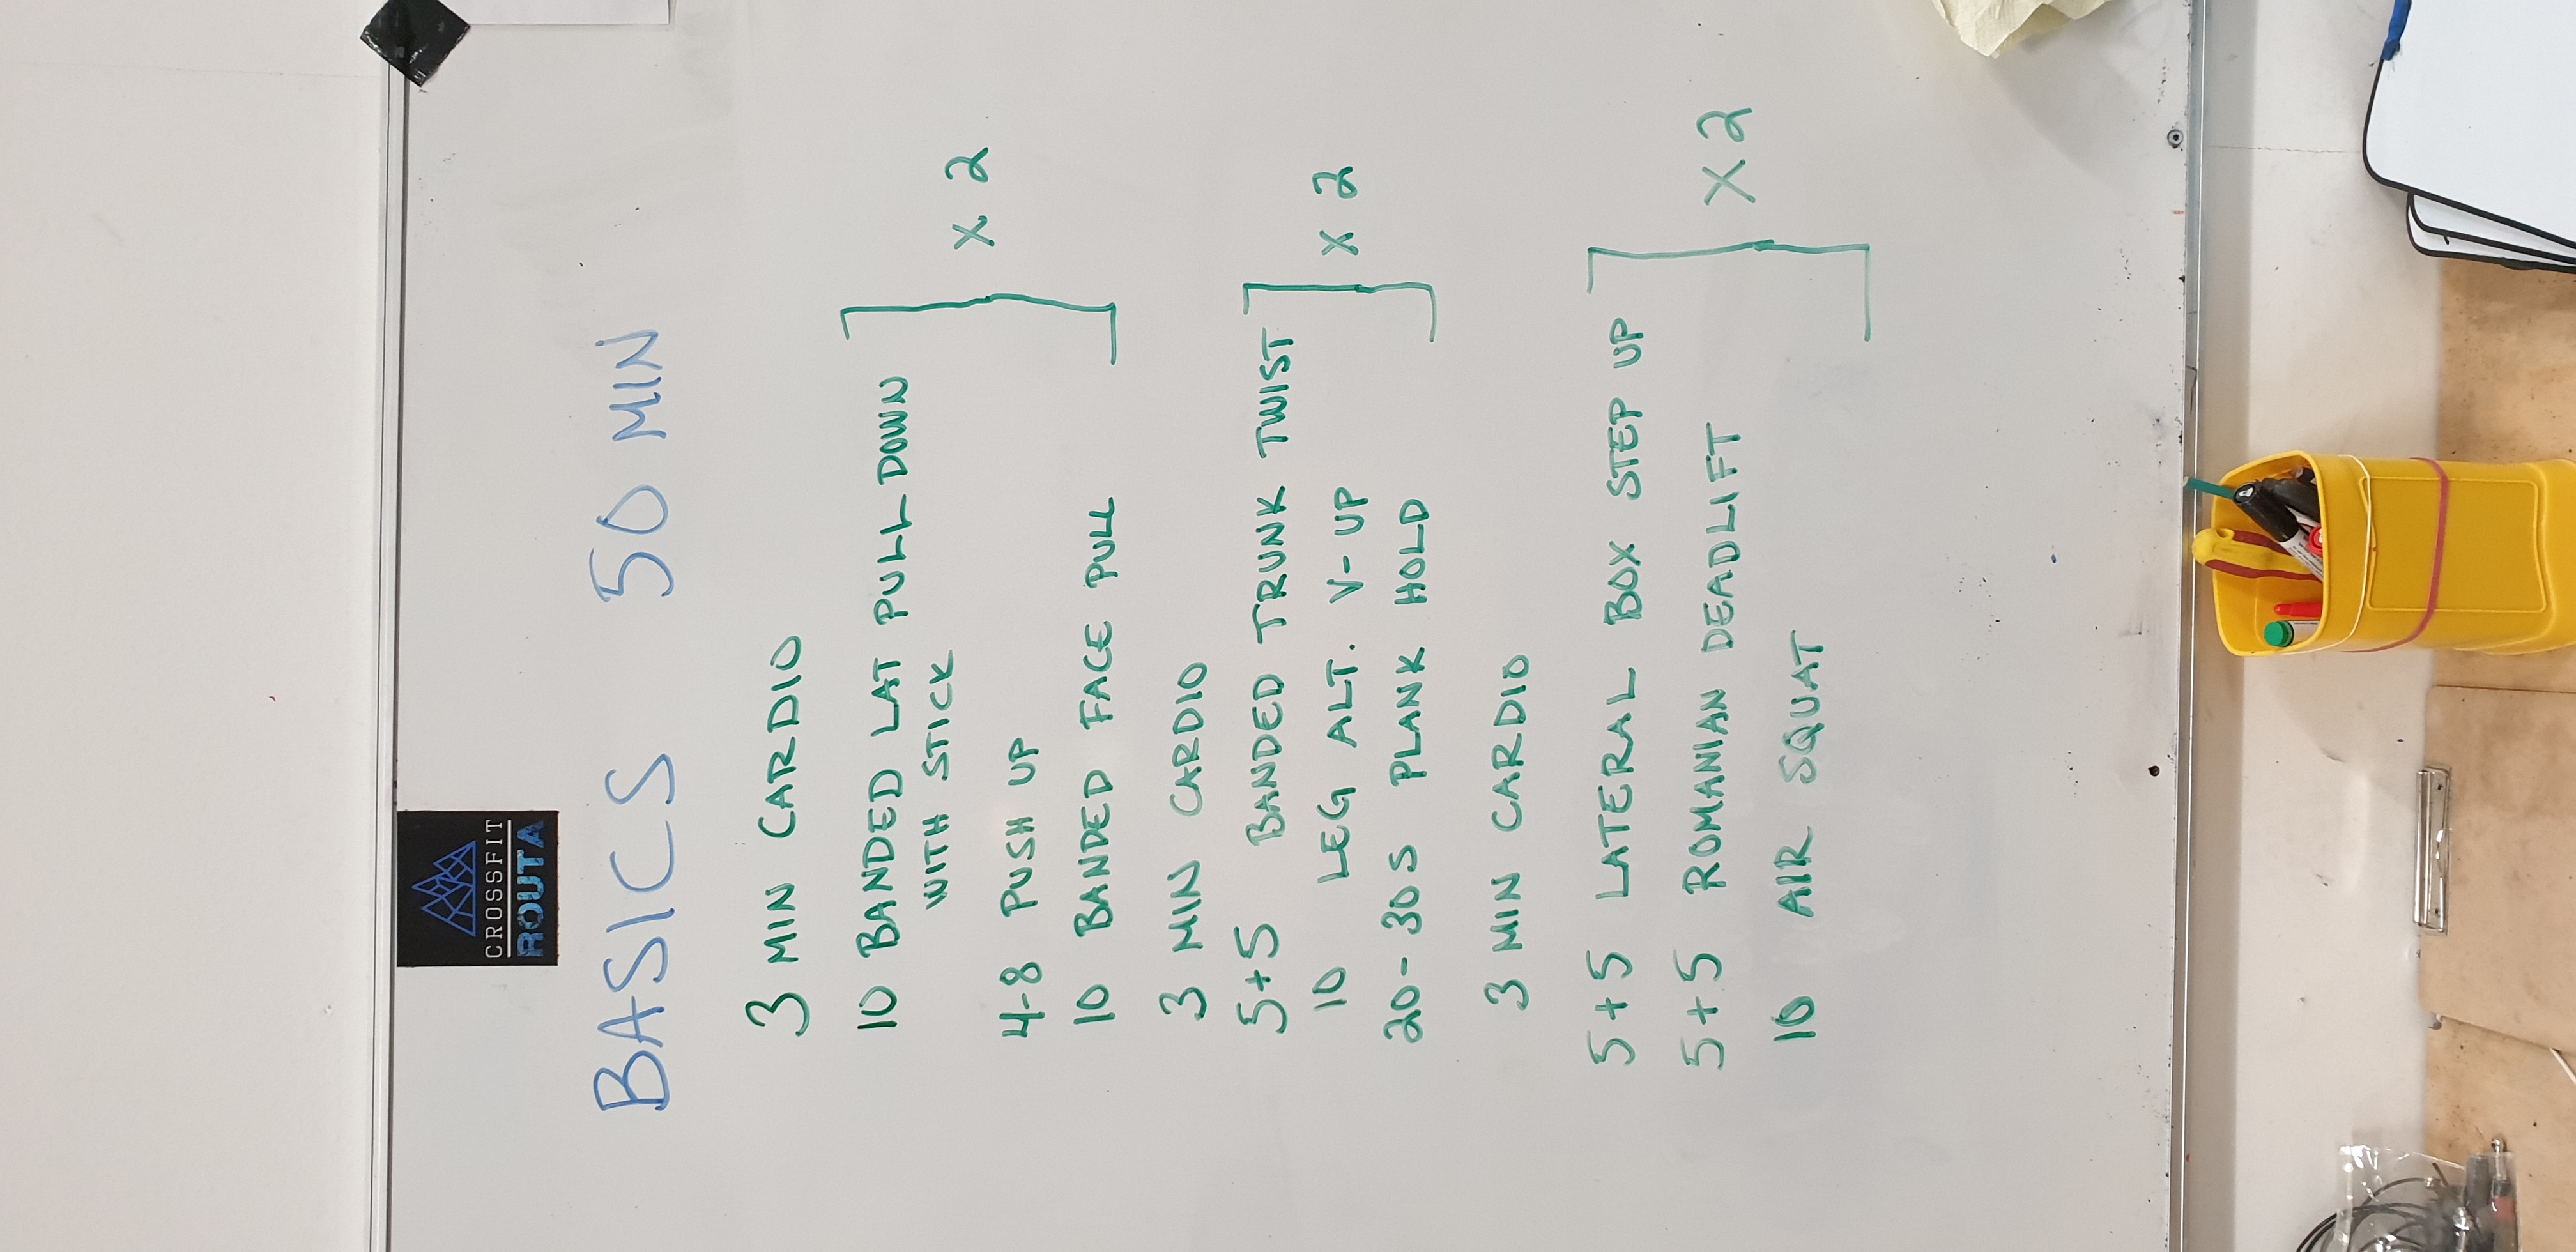 CROSSFIT
ROUTA
BASICS 50 MIN
3 MIN CARDIO
10 BANDED LAT PULL DOWN
WITH STICK
4-8 PUSH UP
10 BANDED FACE PULL
x 2
3 MIN CARDIO
5+5 BANDED TRUNK TWIST
10 LEG ALT. V-UP
20-30S PLANK HOLD
x 2
3 MIN CARDIO
5+5 LATERAL BOX STEP UP
5+5 ROMANIAN DEADLIFT
10 AIR SQUAT
x 2